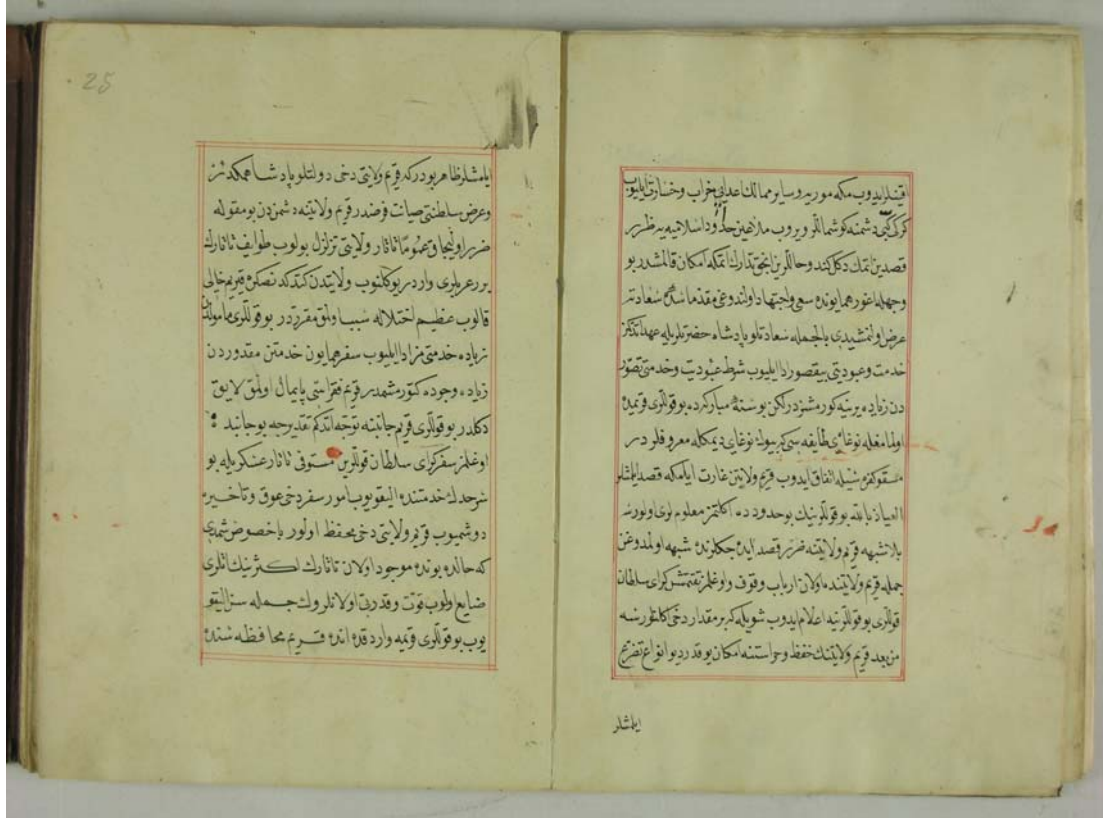 قصد ايدوب مكه موريه وساير ممالك اعدايى خراب وخسارت ايليوب
كرك كبى دشمنه كوشماللر ويروب ملاعين حدود اسلاميه يه ضرر
قصدين اتمك دكل كندو حاللرين انجق تدارك اتمكه امكان قالمشدر بو
وجهله اغور همايونده سعى واجتهاد اولندوغى مقدما سده سعادته
عرض اولنمشيدى بالجمله سعادتلو پادشاه حضرتلريله عهد اتدكز
خدمت وعبوديتى بيقصور ادا ايليوب شرط عبوديت وخدمتى تصور
دن زياده يرينه كورمشزدر لكن بو سنهٔ مباركه ده بو قوللرى قريمده
اولمامغله نوغاى طايفه سى كه بيوك نوغاى ديمكله معروفلردر
مسقو كفره سيله اتفاق ايدوب قريم ولايتن غارت ايلمكه قصد ايلمشلر
العياذ بالله بو قوللرينك بو حدودده اكلنمز معلوملرى اولورسه
بلا شبهه قريم ولايتنه ضرر قصد ايده جكلرنده شبهه اولمدوغن
جمله قريم ولايتنده اولان ارباب وقوف واوغلمز تقتمش كراى سلطان
قوللرى بو قوللرينه اعلام ايدوب شويله كه بر مقدار دخى اكلنورسه
من بعد قريم ولايتنك حفظ وحراستنه امكان يوقدر ديو انواع تضرع
ايلمشلر
25
ايلمشلر ظاهر بودر كه قريم ولايتى دخى دولتلو پادشاهمكدر
وعرض سلطنتى صيانت فرضدر قريم ولايتنه دشمندن بو مقوله
ضرر اوليجاق عموما تاتار ولايتى تزلزل بولوب طوايف تاتارك
يرر عربلرى واردر يوكلنوب ولايتدن كتدكدنصكره قريم خالى
قالوب عظيم اختلاله سبب اولمق مقرردر بو قوللرى مأمولدن
زياده خدمتى مز ادا ايليوب سفر همايون خدمتن مقدوردن
زياده وجوده كتورمشمدر قريم فقراسى پايمال اولمق لايق
دكلدر بو قوللرى قريم جانبنه توجه اتدكم تقديرجه بو جانبده
اوغلمز سفر كراى سلطان قوللرين مستوفى تاتار عسكريله بو
سرحدك خدمتنده اليقويوب امور سفر دخى عوق وتاخيره
دوشميوب قريم ولايتى دخى محفظ اولور باخصوص شمدى
كه حالده بونده موجود اولان تاتارك اكثرينك اتلرى
ضايع اولوب قوت وقدرتى اولانلروك جمله سن اليقو
يوب بو قوللرى قريمه واردقده انده قريم محافظه سنده